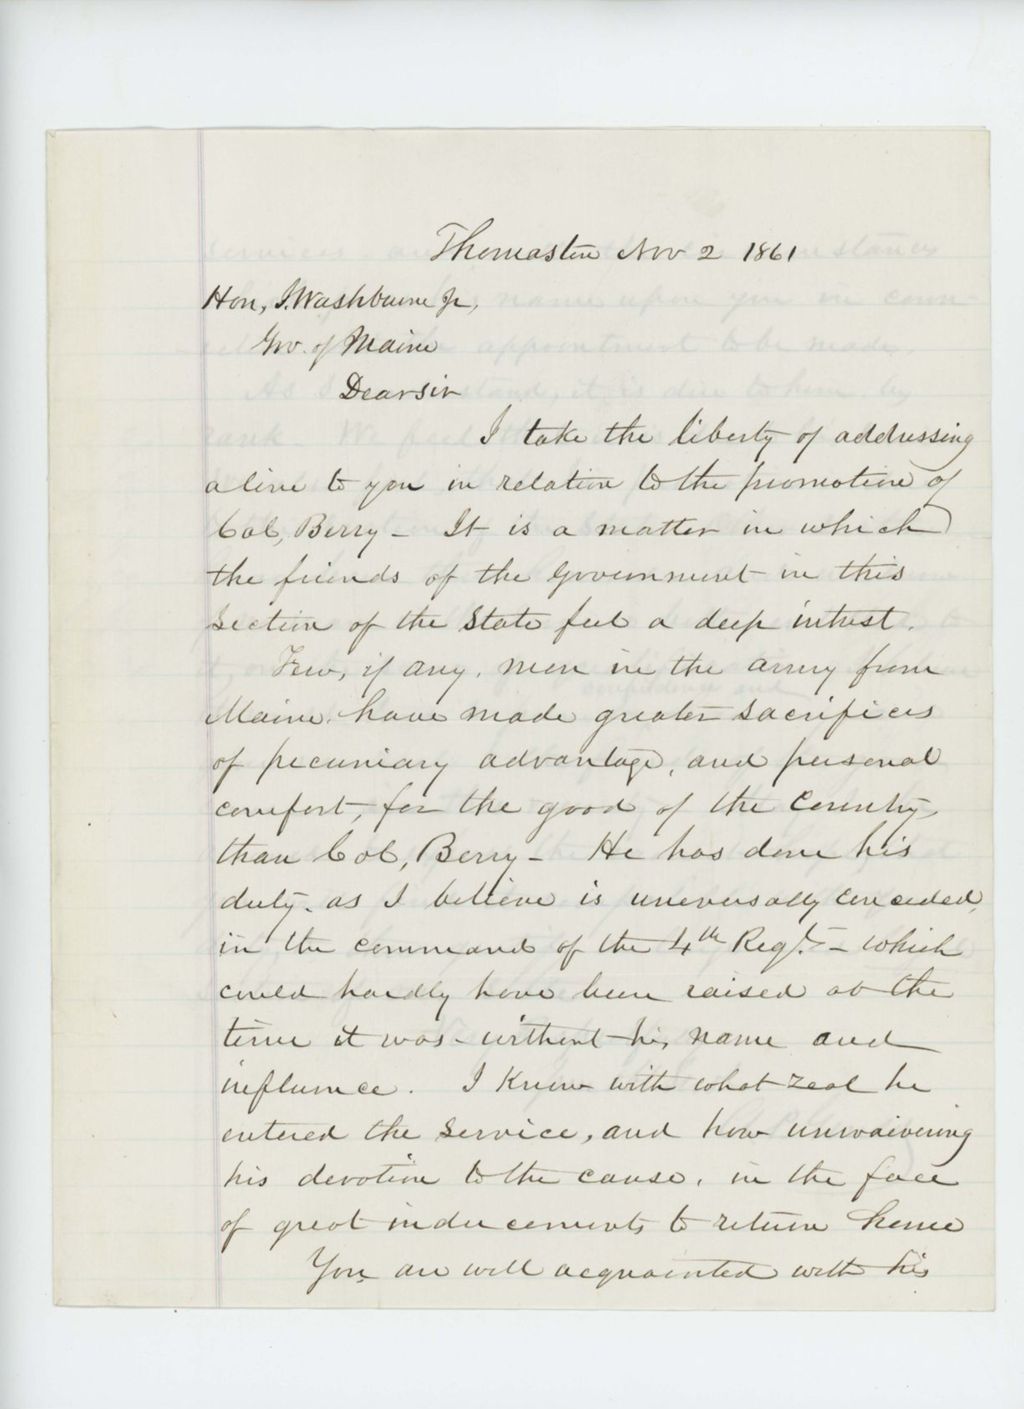 Thomaston Nov 2 1861
Hon, I. Washburne Jr,
Gov. of Maine
Dear sir
I take the liberty of addressing
a line to you in relation to the promotion of
Col, Berry - It is a matter in which
the friends of the Government in this
Section of the State feel a deep intrest.
Few, if any, men in the army from
Maine, have made greater sacrifices
of pecuniary advantage, and personal
comfort, for the good of the Country,
than Col, Berry - He has done his
duty, as I believe is universally conceded,
in the command of the 4th Regt. - which
could hardly have been raised at the
time it was - without his name and
influence. I know with what zeal he
entered the service, and how unwaivering
his devotion to the cause, in the face
of great inducements to return home
You are well acquainted with his